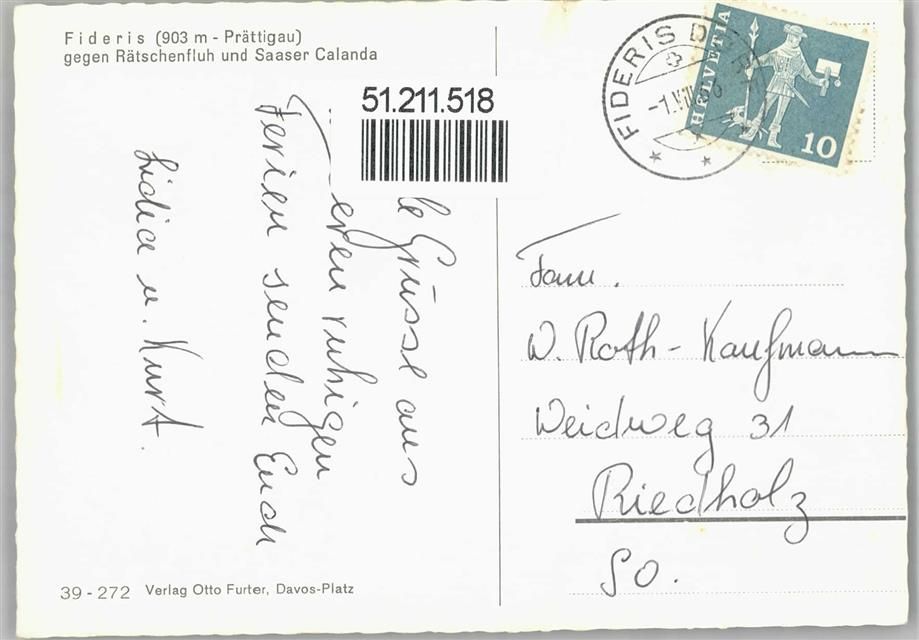 Fideris (903 m - Prättigau)
gegen Rätschenfluh und Saaser Calanda
51.211.518
Grüsse aus
ruhigen
Ferien senden Euch
Lidia u. Kurt.
FIDERIS DORF
HELVETIA
10
Fam.
W. Roth-Kaufmann
Weidweg 31
Riedholz
SO.
39-272 Verlag Otto Furter, Davos-Platz